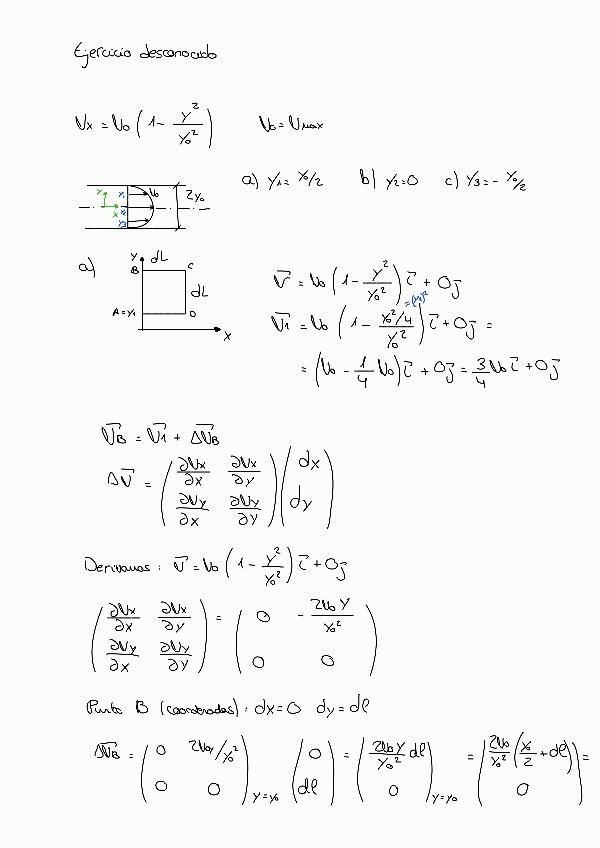 Ejercicio desconocido
Vx = V₀ (1 - y²/y₀²)    V₀ = Vmax
a) y₁ = y₀/2    b) y₂ = 0    c) y₃ = - y₀/2
y x y₁ y₂ y₃ V₀ 2y₀
a) y B dL C dL A=y₁ D x
V⃗ = V₀ (1 - y²/y₀²) i⃗ + 0j⃗
= (y₀/2)²
V⃗₁ = V₀ (1 - (y₀²/4)/y₀²) i⃗ + 0j⃗ =
= (V₀ - 1/4 V₀) i⃗ + 0j⃗ = 3/4 V₀ i⃗ + 0j⃗
V⃗B = V⃗₁ + ΔV⃗B
ΔV⃗ = (∂Vx/∂x ∂Vx/∂y ; ∂Vy/∂x ∂Vy/∂y) (dx ; dy)
Derivamos: V⃗ = V₀ (1 - y²/y₀²) i⃗ + 0j⃗
(∂Vx/∂x ∂Vx/∂y ; ∂Vy/∂x ∂Vy/∂y) = (0 - 2V₀y/y₀² ; 0 0)
Punto B (coordenadas): dx = 0 dy = dl
ΔV⃗B = (0 2V₀y/y₀² ; 0 0)y=y₀ (0 ; dl) = (2V₀y/y₀² dl ; 0)y=y₀ = (2V₀/y₀² (y₀/2 + dl) ; 0) =